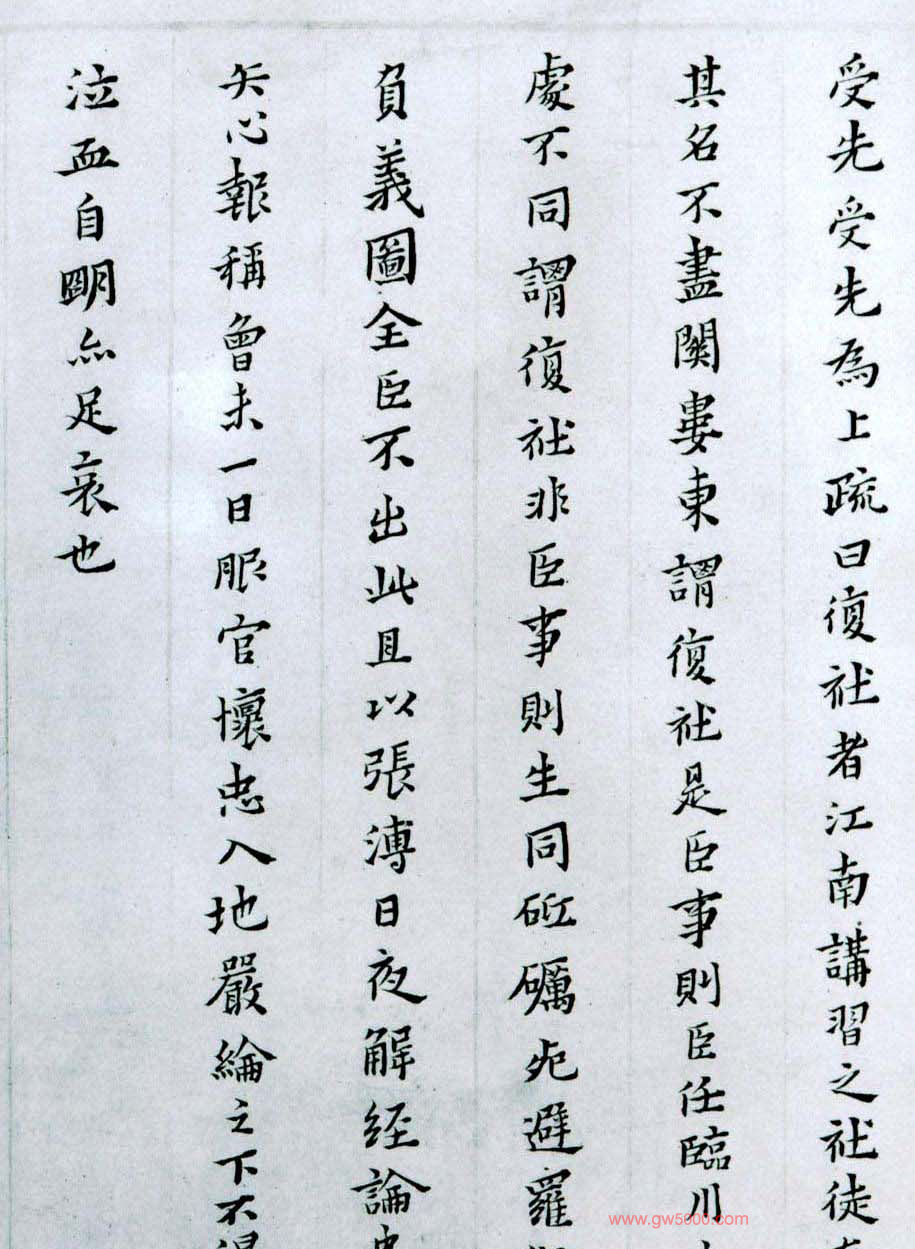 受先受先為上疏曰復社者江南講習之社徒
其名不盡關婁東謂復社是臣事則臣任臨川
處不同謂復社非臣事則生同砥礪死避羅
負義圖全臣不出此且以張溥日夜解經論忠
矢心報稱曾未一日服官懷忠入地嚴綸之下不得
泣血自明亦足哀也
www.gw5000.com